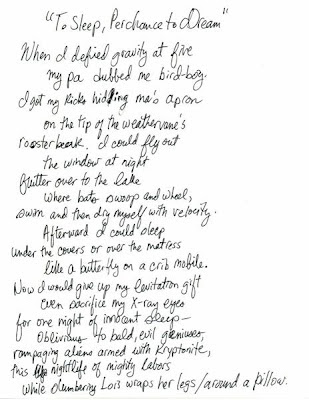 "To Sleep, Perchance to Dream"
When I defied gravity at five
my pa dubbed me bird-boy.
I got my kicks hiding ma's apron
on the tip of the weathervane's
roosterbeak. I could fly out
the window at night
flutter over to the lake
where bats swoop and wheel,
swim and then dry myself with velocity.
Afterward I could sleep
under the covers or over the matress
like a butterfly on a crib mobile.
Now I would give up my levitation gift
even sacrifice my X-ray eyes
for one night of innocent sleep—
oblivious to bald, evil geniuses,
rampaging aliens armed with Kryptonite,
this nightlife of mighty labors
while slumbering Lois wraps her legs/around a pillow.